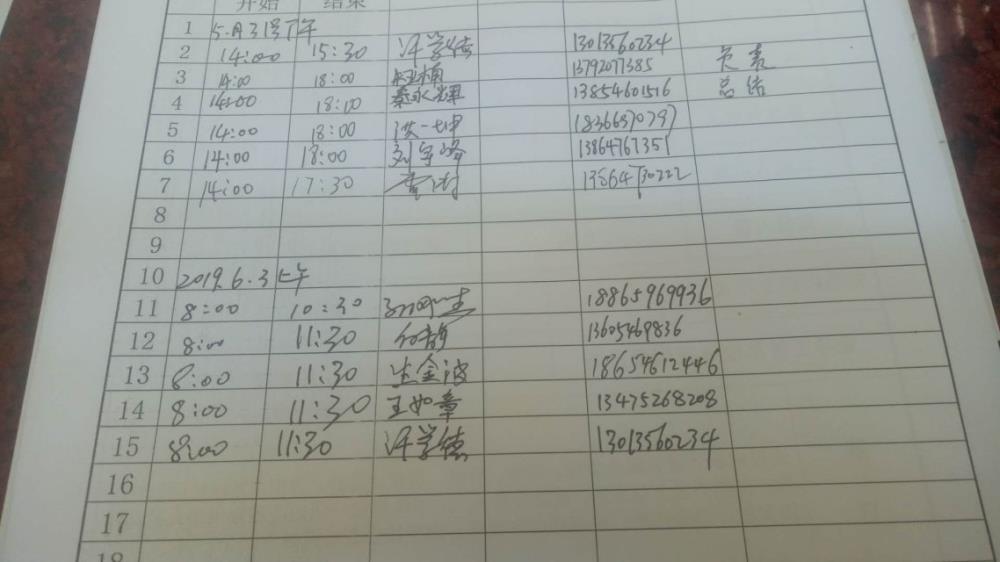 开始 结束
1 5月31号下午
2 14:00 15:30 许学德 13013560234 负责
3 14:00 18:00 13792077385 总结
4 14:00 18:00 秦永翠 13854601516
5 14:00 18:00 洪一坤
6 14:00 18:00 刘宇峰 13864767351
7 14:00 17:30 13864730222
8
9
10 2019.6.3上午
11 8:00 10:30 18865969936
12 8:00 11:30 13605469836
13 8:00 11:30 生金波 18654612446
14 8:00 11:30 王如章 13475268208
15 8:00 11:30 许学德 13013560234
16
17
18